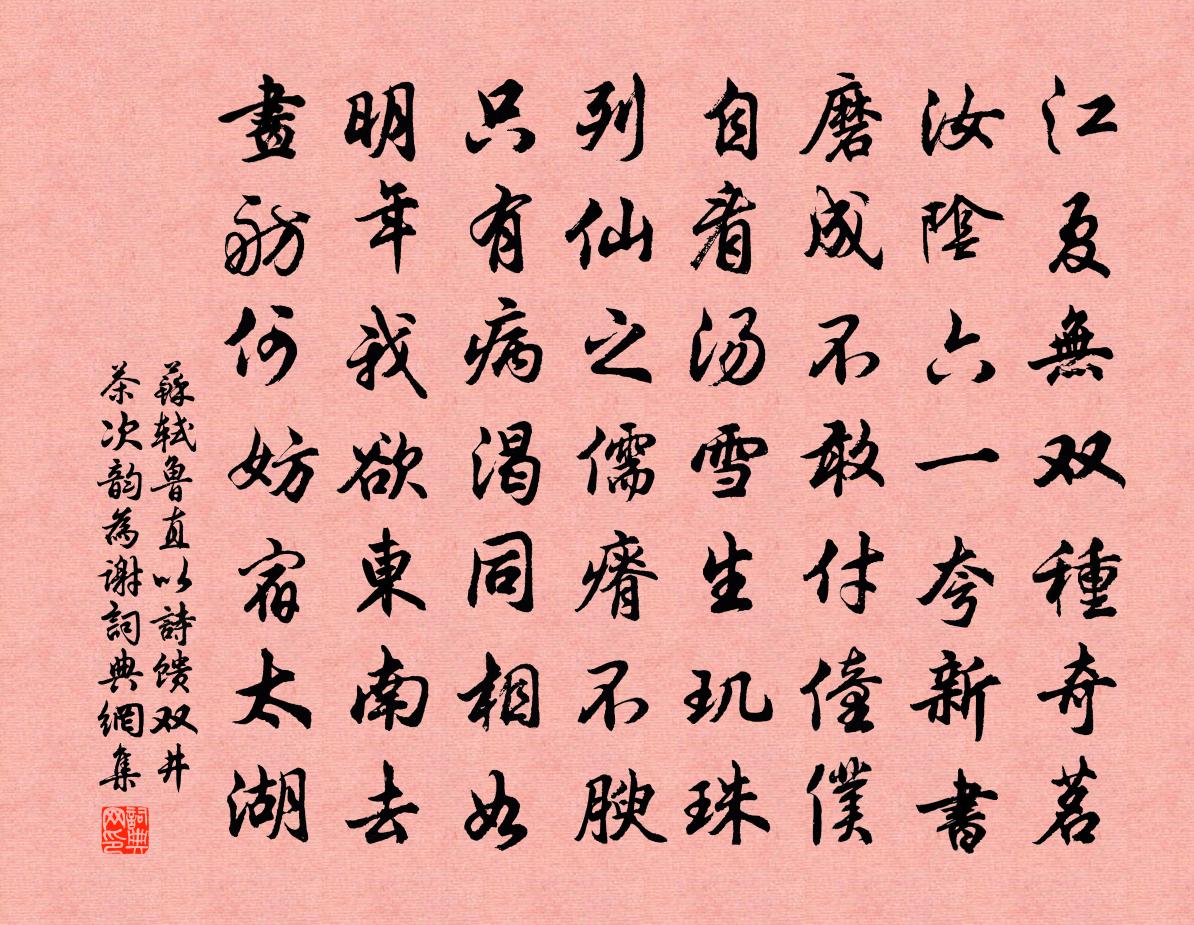 江夏無双種奇茗
汝陰六一夸新書
磨成不敢付僮僕
自看汤雪生玑珠
列仙之儒瘠不腴
只有病渴同相如
明年我欲東南去
畫舫何妨宿太湖
蘇轼魯直以詩馈双井
茶次韵為谢詞典網集
詞典网印